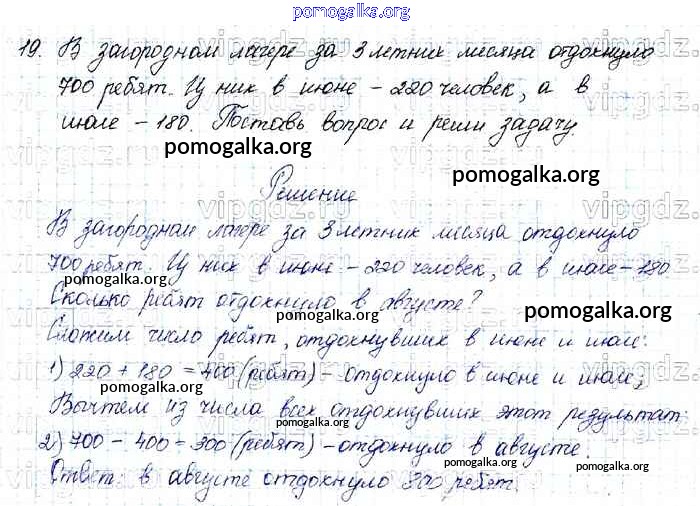 pomogalka.org
19. В загородном лагере за 3 летних месяца отдохнуло
700 ребят. Из них в июне - 220 человек, а в
июле - 180. Поставь вопрос и реши задачу.
pomogalka.org
pomogalka.org
Решение
В загородном лагере за 3 летних месяца отдохнуло
700 ребят. Из них в июне - 220 человек, а в июле - 180
Сколько ребят отдохнуло в августе?
pomogalka.org
Сложим число ребят, отдохнувших в июне и июле:
1) 220 + 180 = 400 (ребят) - отдохнуло в июне и июле;
pomogalka.org
Вычтем из числа всех отдохнувших этот результат
2) 700 - 400 = 300 (ребят) - отдохнуло в августе.
pomogalka.org
pomogalka.org
Ответ: в августе отдохнуло 300 ребят.